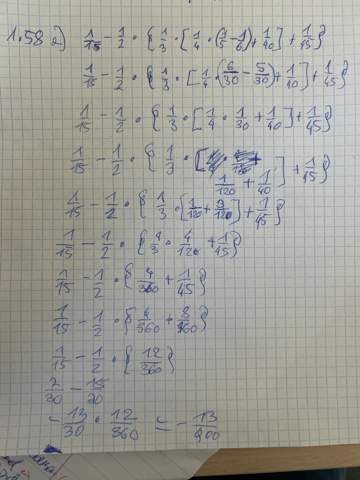 1.58 2) 1/15 - 1/2 · {1/3 · [1/4 · (1/5 - 1/6) + 1/40] + 1/45}
1/15 - 1/2 · {1/3 · [1/4 · (6/30 - 5/30) + 1/40] + 1/45}
1/15 - 1/2 · {1/3 · [1/4 · 1/30 + 1/40] + 1/45}
1/15 - 1/2 · {1/3 · [1/120 + 1/40] + 1/45}
1/15 - 1/2 · {1/3 · [1/120 + 3/120] + 1/45}
1/15 - 1/2 · {1/3 · 4/120 + 1/45}
1/15 - 1/2 · {4/360 + 1/45}
1/15 - 1/2 · {4/360 + 8/360}
1/15 - 1/2 · {12/360}
2/30 - 15/30
- 13/30 · 12/360 = - 13/900